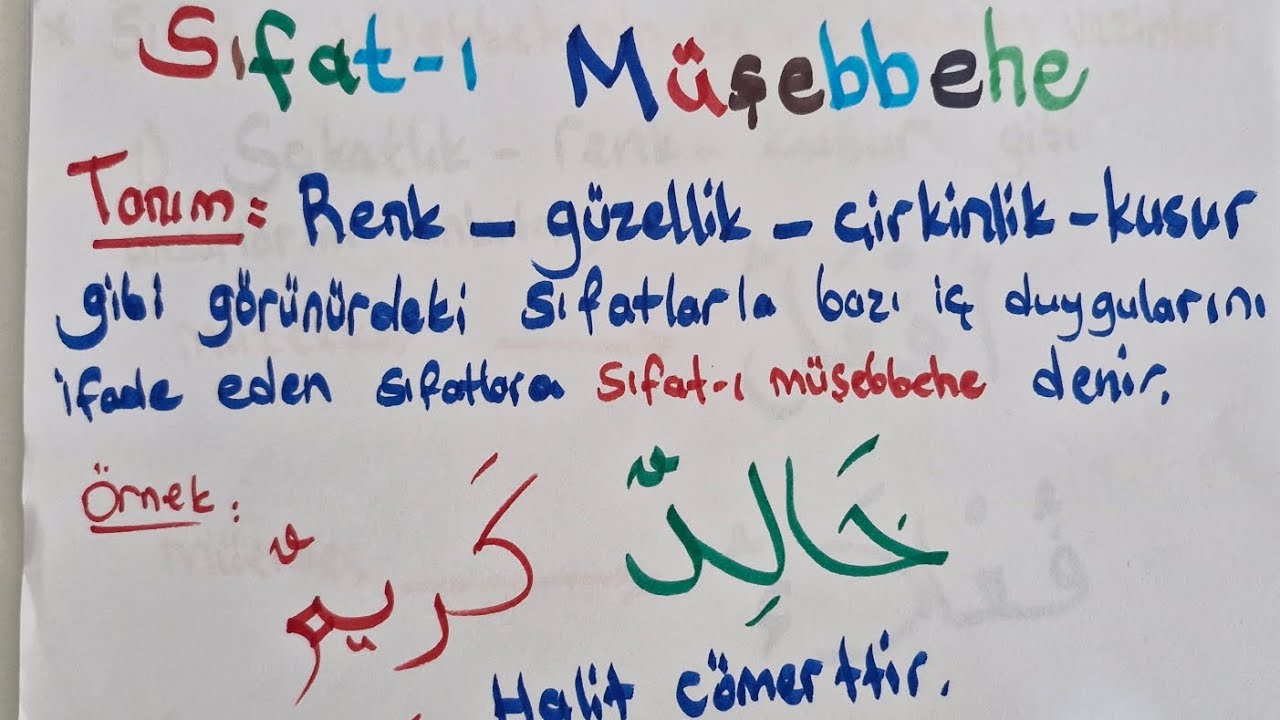 Sıfat-ı Müşebbehe
Tanım: Renk - güzellik - çirkinlik - kusur
gibi görünürdeki sıfatlarla bazı iç duygularını
ifade eden sıfatlara sıfat-ı müşebbehe denir.
Örnek: خَالِدٌ كَرِيمٌ
Halit cömerttir.